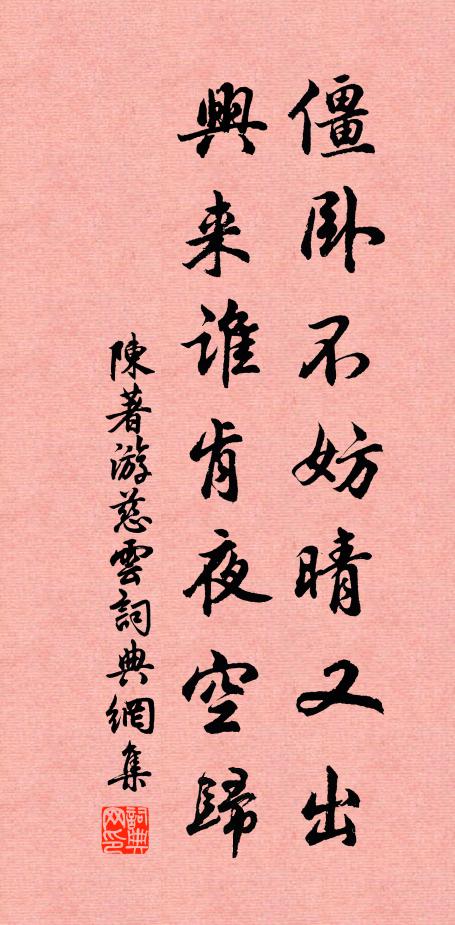 僵卧不妨晴又出
興来谁肯夜空歸
陳著游慈雲詞典網集
詞典网印